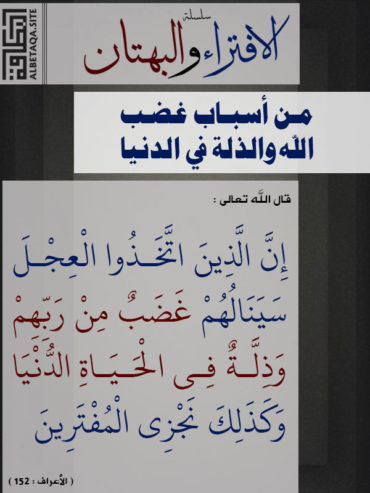 البطاقة
ALBETAQA.SITE
سلسلة
الافتراء والبهتان
من أسباب غضب
الله والذلة في الدنيا
قال الله تعالى :
إِنَّ الَّذِينَ اتَّخَذُوا الْعِجْلَ
سَيَنَالُهُمْ غَضَبٌ مِنْ رَبِّهِمْ
وَذِلَّةٌ فِى الْحَيَاةِ الدُّنْيَا
وَكَذَلِكَ نَجْزِى الْمُفْتَرِينَ
( الأعراف : 152 )